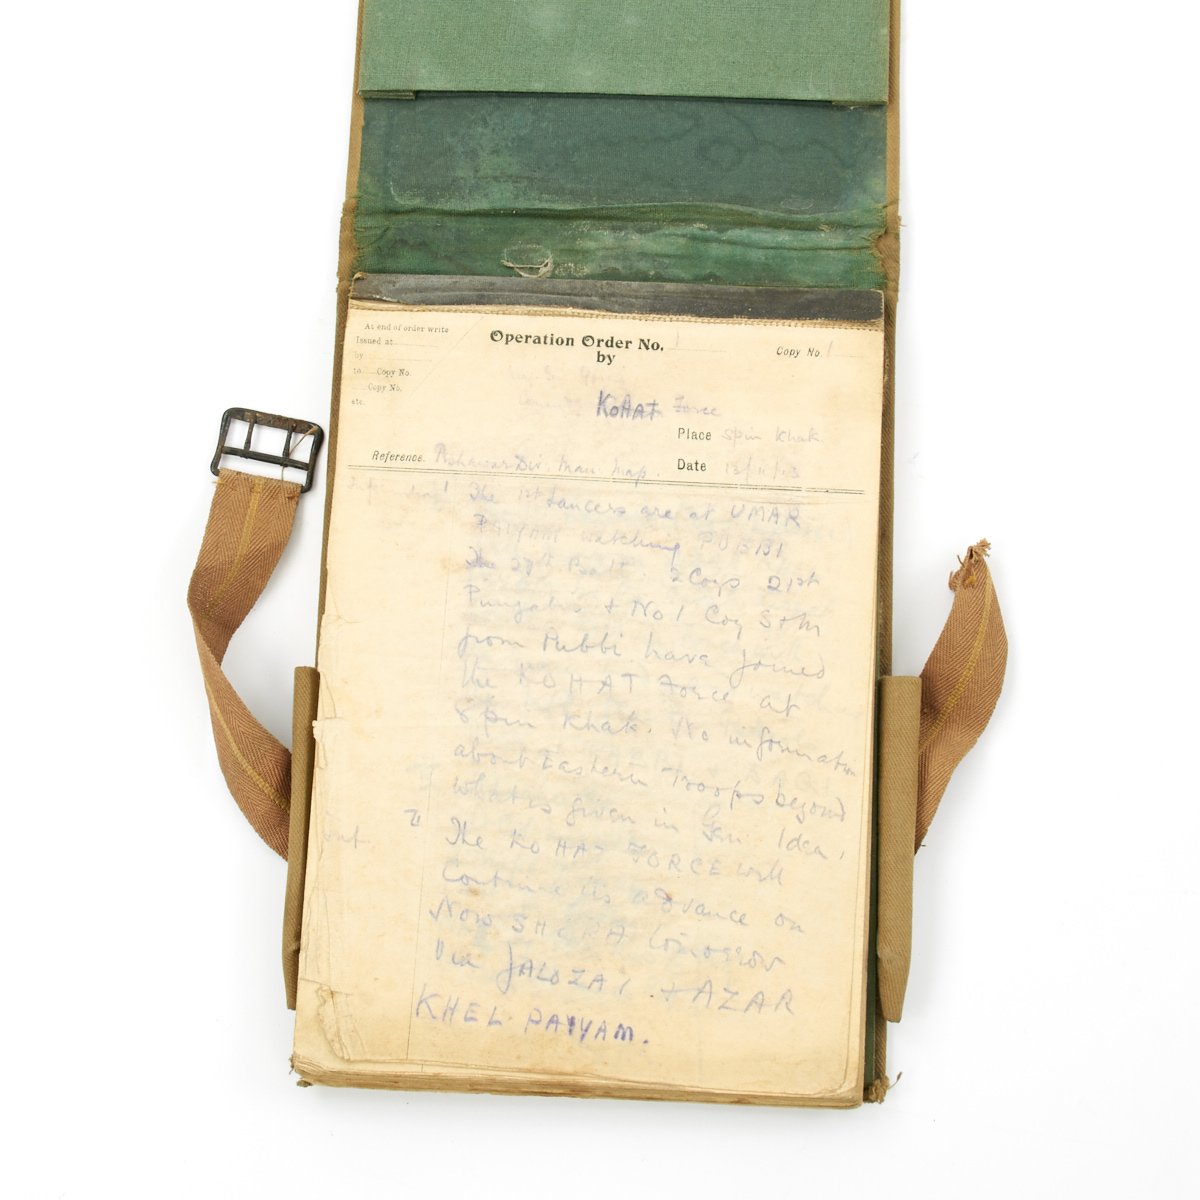 At end of order write
Issued at
by
to Copy No.
Copy No.
etc.
Operation Order No. 1
by
Copy No. 1
KOHAT Force
Place Spin Khak.
Reference. Peshawar Div. Man. Map.
Date 13/11/13
The 1st Lancers are at UMAR
PAIYAM watching PUBBI
The 27th Batt. 2 Coys 21st
Punjabis + No 1 Coy S+M
from Pubbi have joined
the KOHAT Force at
Spin Khak. No information
about Eastern Troops beyond
what is given in Gen Idea.
Int.
The KOHAT FORCE will
Continue its advance on
NowSHERA tomorrow
Via JALOZAI + AZAR
KHEL PAIYAM.